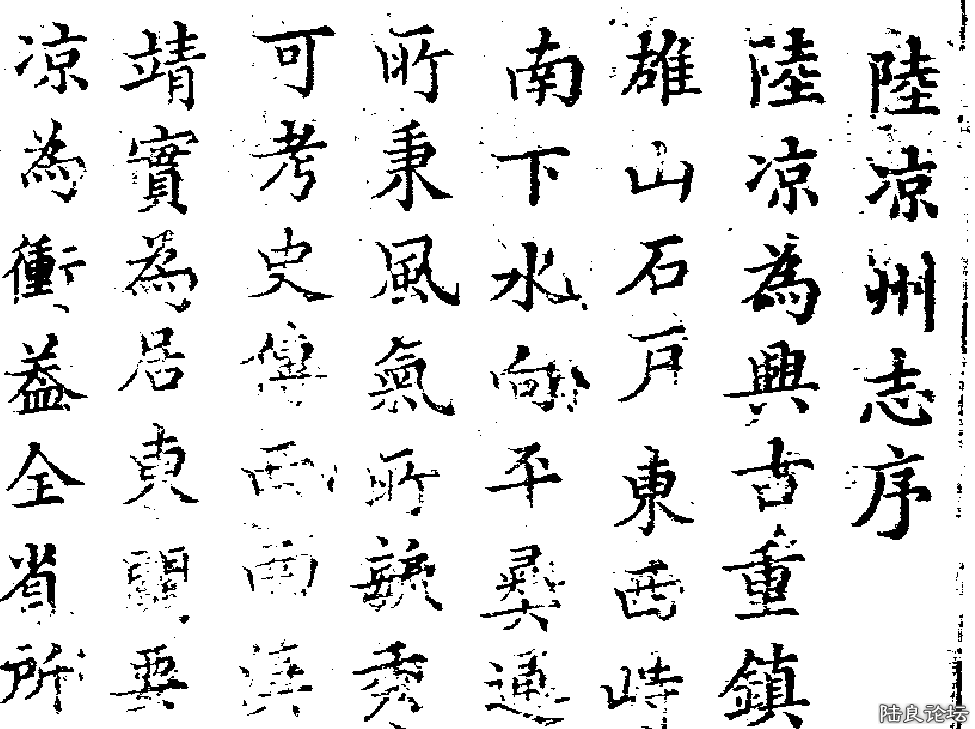 陸涼州志序
陸涼為興古重鎮
雄山石戸東西峙
南下水向平彝通
所秉風氣所毓秀
可考史傳西南滇
靖實為居東關要
凉為衝蓋全省所
陆良论坛